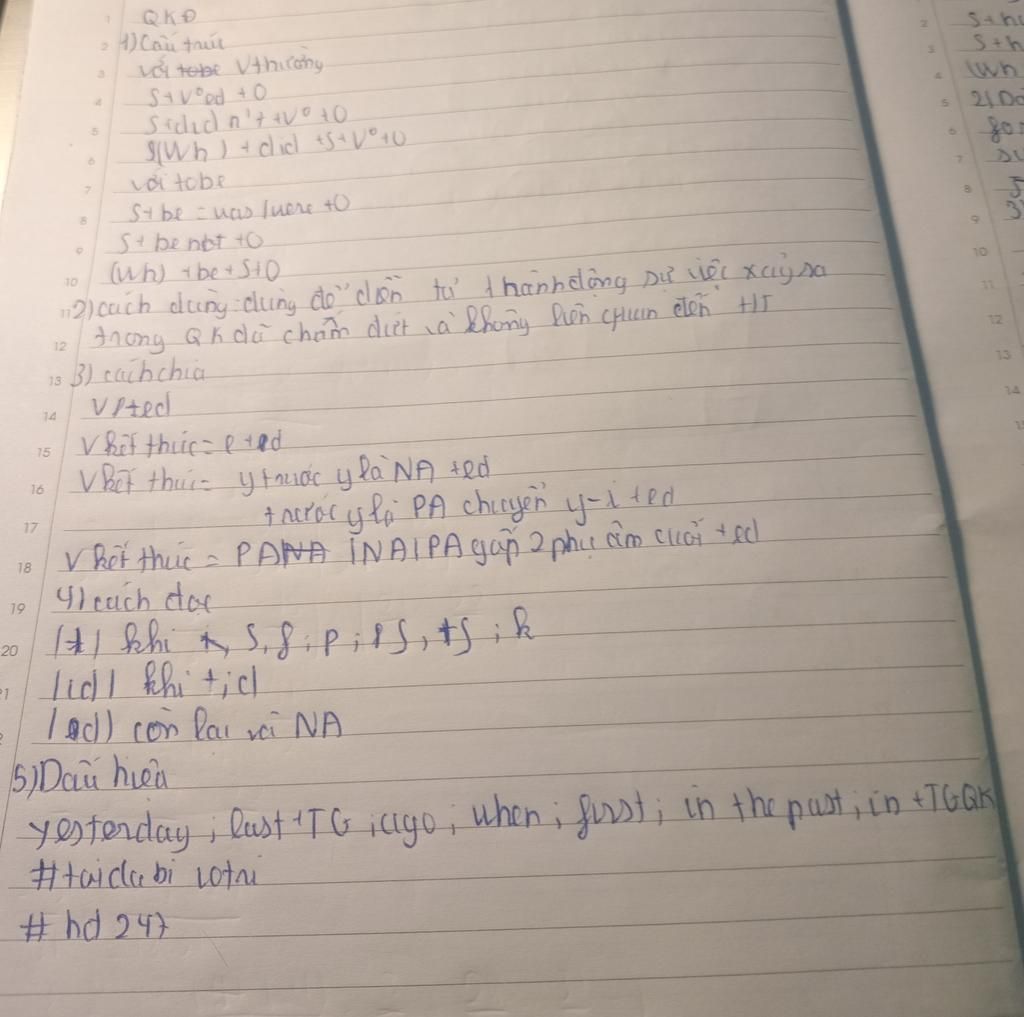 QKĐ
1) Cấu trúc
với tobe Vthường
S+V⁰ed +O
S+didn't +V⁰+O
(Wh) + did +S+V⁰+O
với tobe
S+be = was/were +O
S+be not +O
(Wh) +be+S+O
2) cách dùng: dùng để diễn tả hành động sự việc xảy ra
trong QK đã chấm dứt và không liên quan đến HT
3) cách chia
V +ed
V kết thúc = e +ed
V kết thúc = y trước y là NA +ed
trước y là PA chuyển y-i +ed
V kết thúc = PANA 1NA1PA gấp 2 phụ âm cuối +ed
4) cách đọc
/t/ khi s, f; p; k
/id/ khi t; d
còn lại và NA
5) Dấu hiệu
yesterday; last +TG; ago; when; first; in the past; in +TGQK
#taidabi
# hd 247
S+h
S+h
Wh
2)
5
3